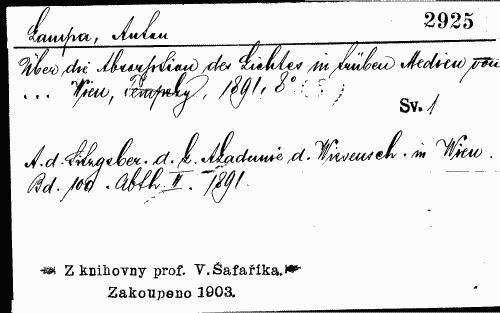 2925
Lampa, Anton
Über die Absorption des Lichtes in trüben Medien von
... Wien, Tempsky, 1891, 8°
Sv. 1
A. d. Sitzgsber. d. k. Akademie d. Wissensch. in Wien.
Bd. 100. Abth. II. 1891.
Z knihovny prof. V. Šafaříka.
Zakoupeno 1903.